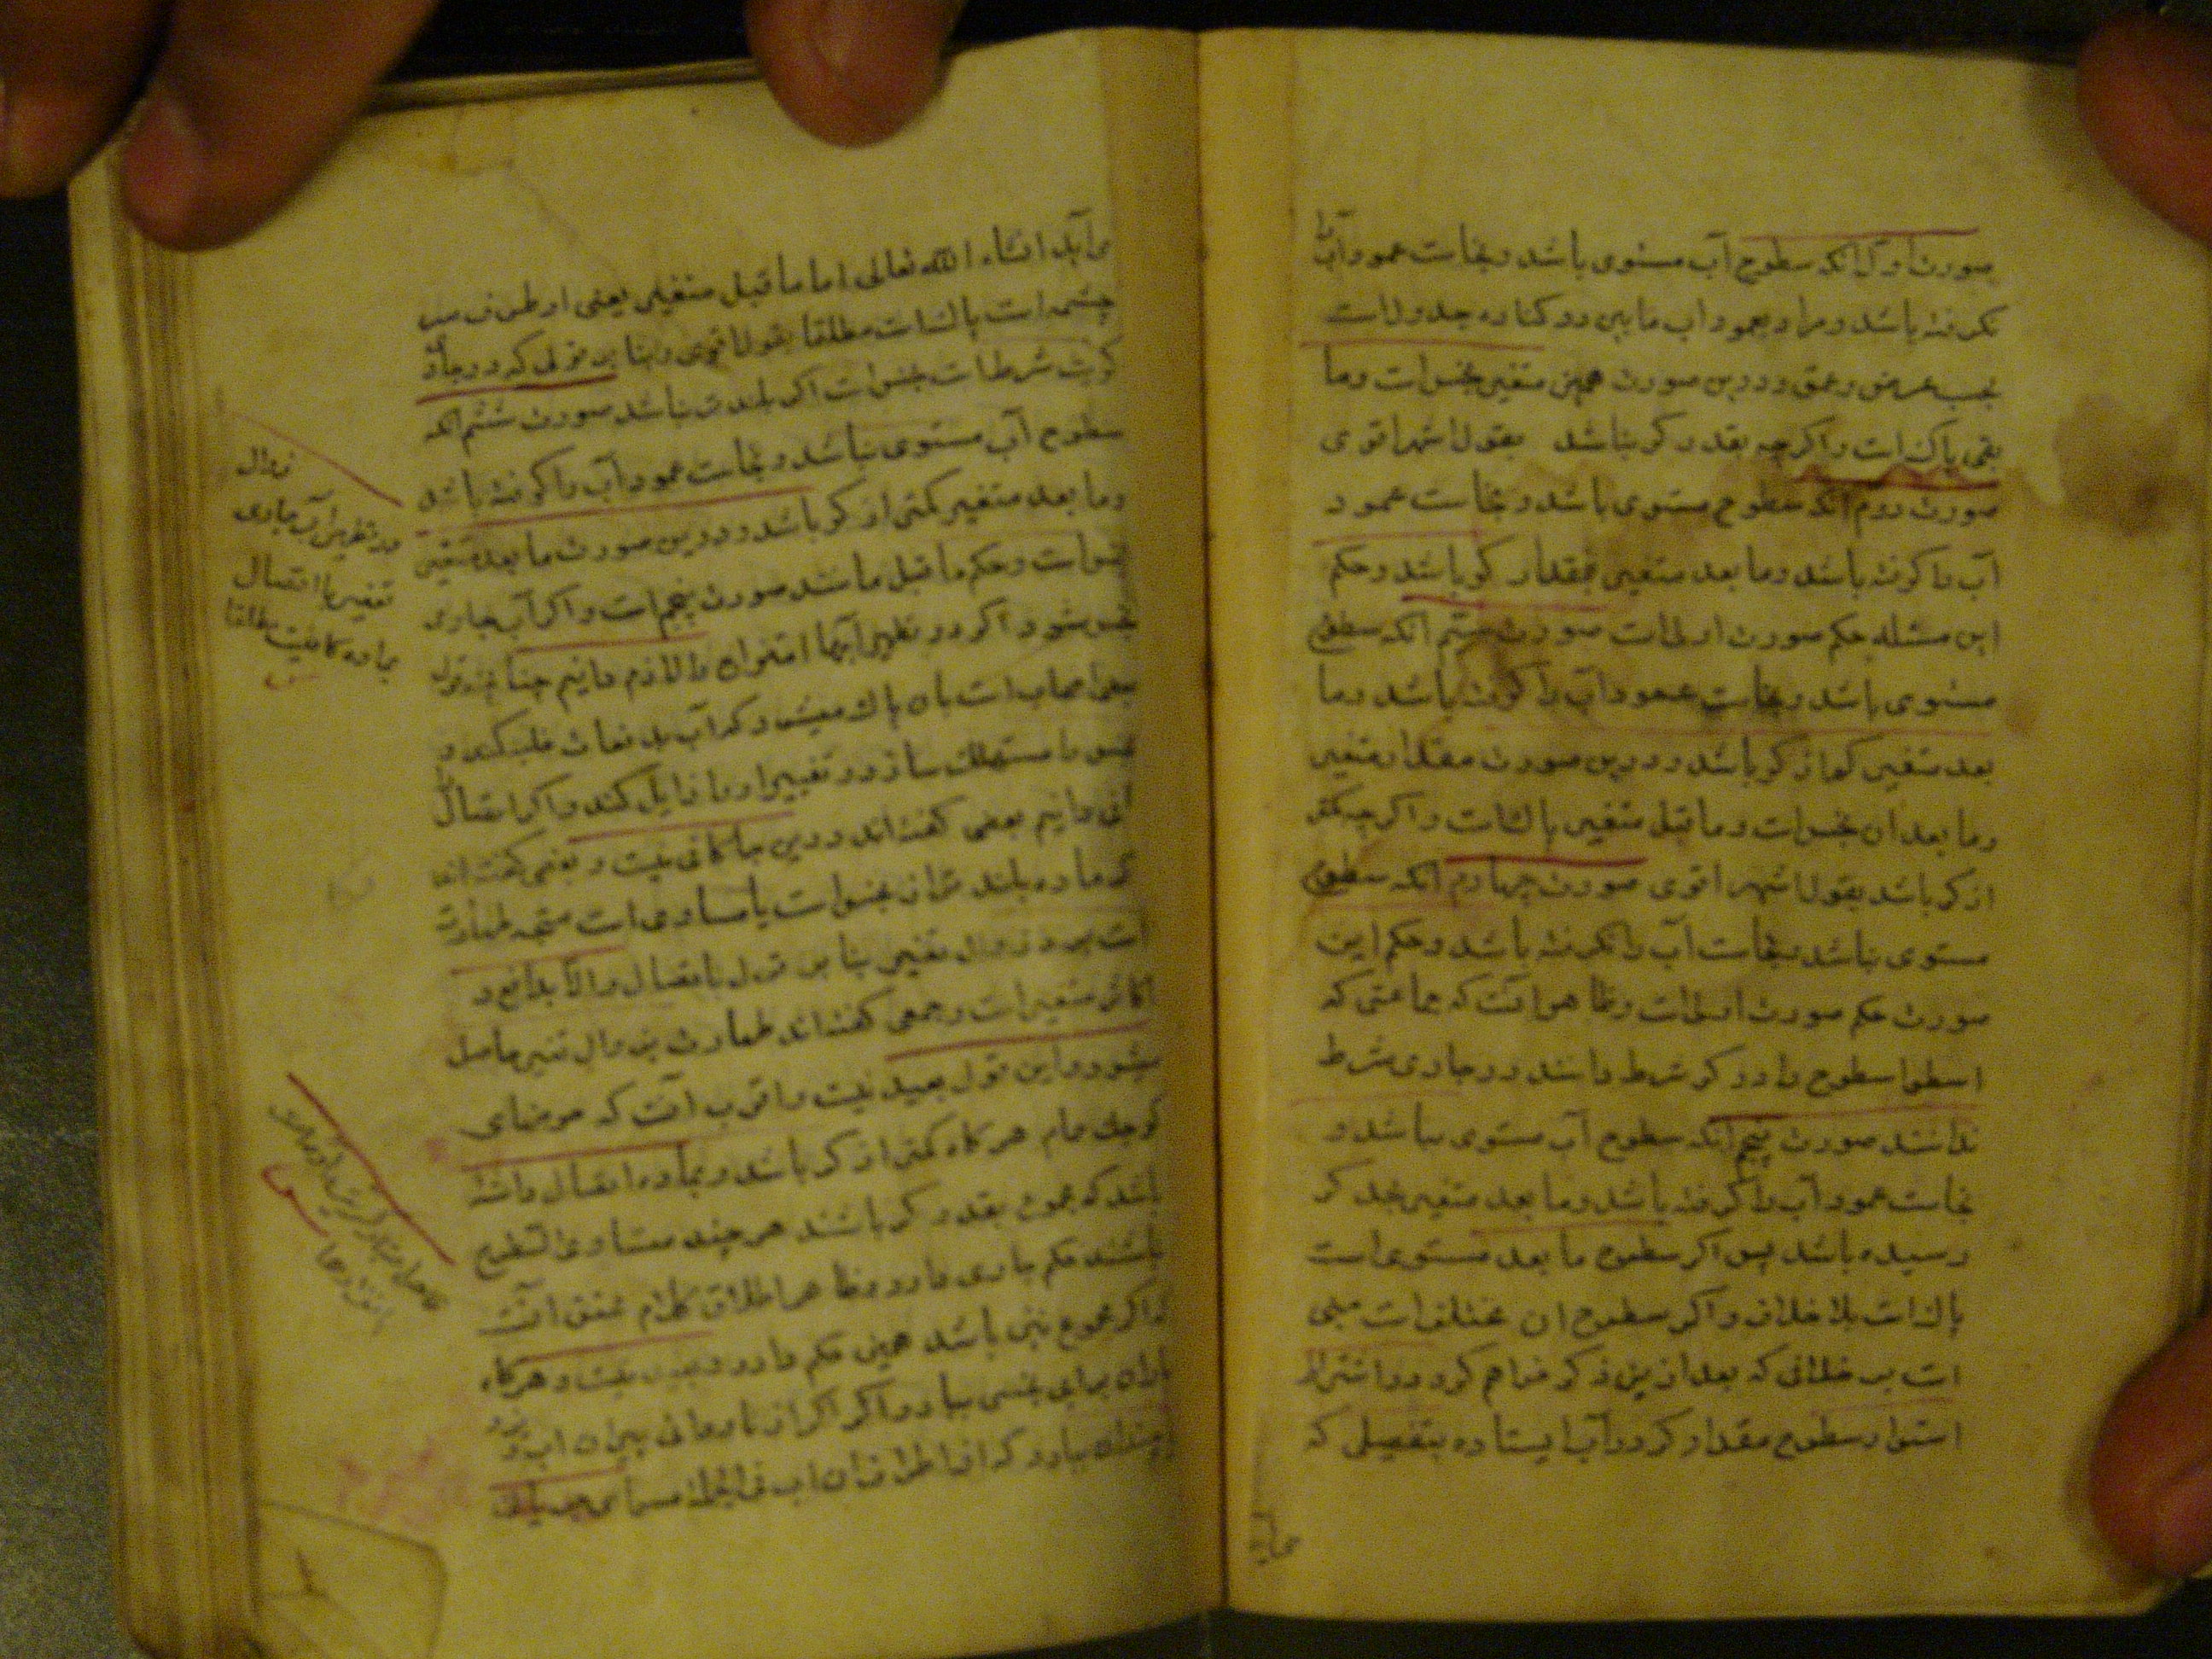 صورت اول آنکه سطوح آب مستوی باشد و نجاست عمود آب را
نکرفته باشد و مراد بعمود آب مابین دو کناره جدولست
بحسب عرض و عمق و درین صورت همین متغیر نجس است و ما
بقی پاکست و اکرچه بقدر کر نباشد بقول اشهر اقوی
صورت دوم آنکه سطوح مستوی باشد و نجاست عمود
آب را کرفته باشد و ما بعد متغیر بمقدار کر باشد و حکم
این مسئله حکم صورت اولست صورت سیّم آنکه سطوح
مستوی باشد و نجاست عمود آب را کرفته باشد و ما
بعد متغیر کم از کر باشد و درین صورت مقدار متغیر
و ما بعد آن نجس است و ما قبل متغیر پاکست و اکرچه کمتر
از کر باشد بقول اشهر اقوی صورت چهارم آنکه سطوح
مستوی نباشد و نجاست آب را نکرفته باشد و حکم این
صورت حکم صورت اولست و ظاهر آنست که جماعتی که
استوا سطوح را در کر شرط دانند در جاری شرط
ندانند صورت پنجم آنکه سطوح آب مستوی نباشد و
نجاست عمود آب را کرفته باشد و ما بعد متغیر بحد کر
رسیده باشد پس اکر سطوح ما بعد مستوی است
پاکست بلا خلاف و اکر سطوح آن مختلف است مبنی
است بر خلافی که بعد ازین ذکر خواهم کرد در اشتراط
استواء سطوح مقدار کر در آب ایستاده بتفصیلی که
می آید انشاء الله تعالی اما ما قبل متغیر یعنی از طرف
چشمه است پاکست مطلقا بقول اقوی و بنا بر قولی که در جاری
کریت شرطست نجس است اکر بلندتر نباشد صورت ششم آنکه
سطوح آب مستوی نباشد و نجاست عمود آب را کرفته باشد
و ما بعد متغیر کمتر از کر باشد و درین صورت ما بعد متغیر
نجس است و حکم ما قبل مانند صورت پنجم است و اکر آب جاری
نجس شود اکر در تطهیر آبها امتزاج را لازم دانیم چنانچه قول
بعض اصحاب است بآن پاک میشود که آب بر نجاست غلبه کند و
نجس را مستهلک سازد و تغییر او را زایل کند و اکر اتصال را
کافی دانیم بعضی کفته اند درین جا کافی نیست و بعضی کفته اند
اکر ماده بلندتر از نجس است یا مساوی است متجه طهارت
است بمجرد زوال تغییر بنا بر قول باتصال و الا بدافع و
تکاثر متغیر است و جمعی کفته اند طهارت بزوال تغییر حاصل
میشود و این قول بعید نیست و اقرب آنست که حوضهای
کوچک حمام هرکاه کمتر از کر باشد و بماده اتصال داشته
باشند که مجموع بقدر کر باشند هر چند متساوی السطوح
باشند حکم جاری دارد و ظاهر اطلاق کلام محقق آنست
که اکر مجموع نیز باشد همین حکم دارد و بعید نیست و هرکاه
باران بر آب نجسی ببارد و اکر از ناودانی بمیان آب
زوال
در تطهیر آب جاری
تغییر با اتصال
بماده کافیست مطلقا